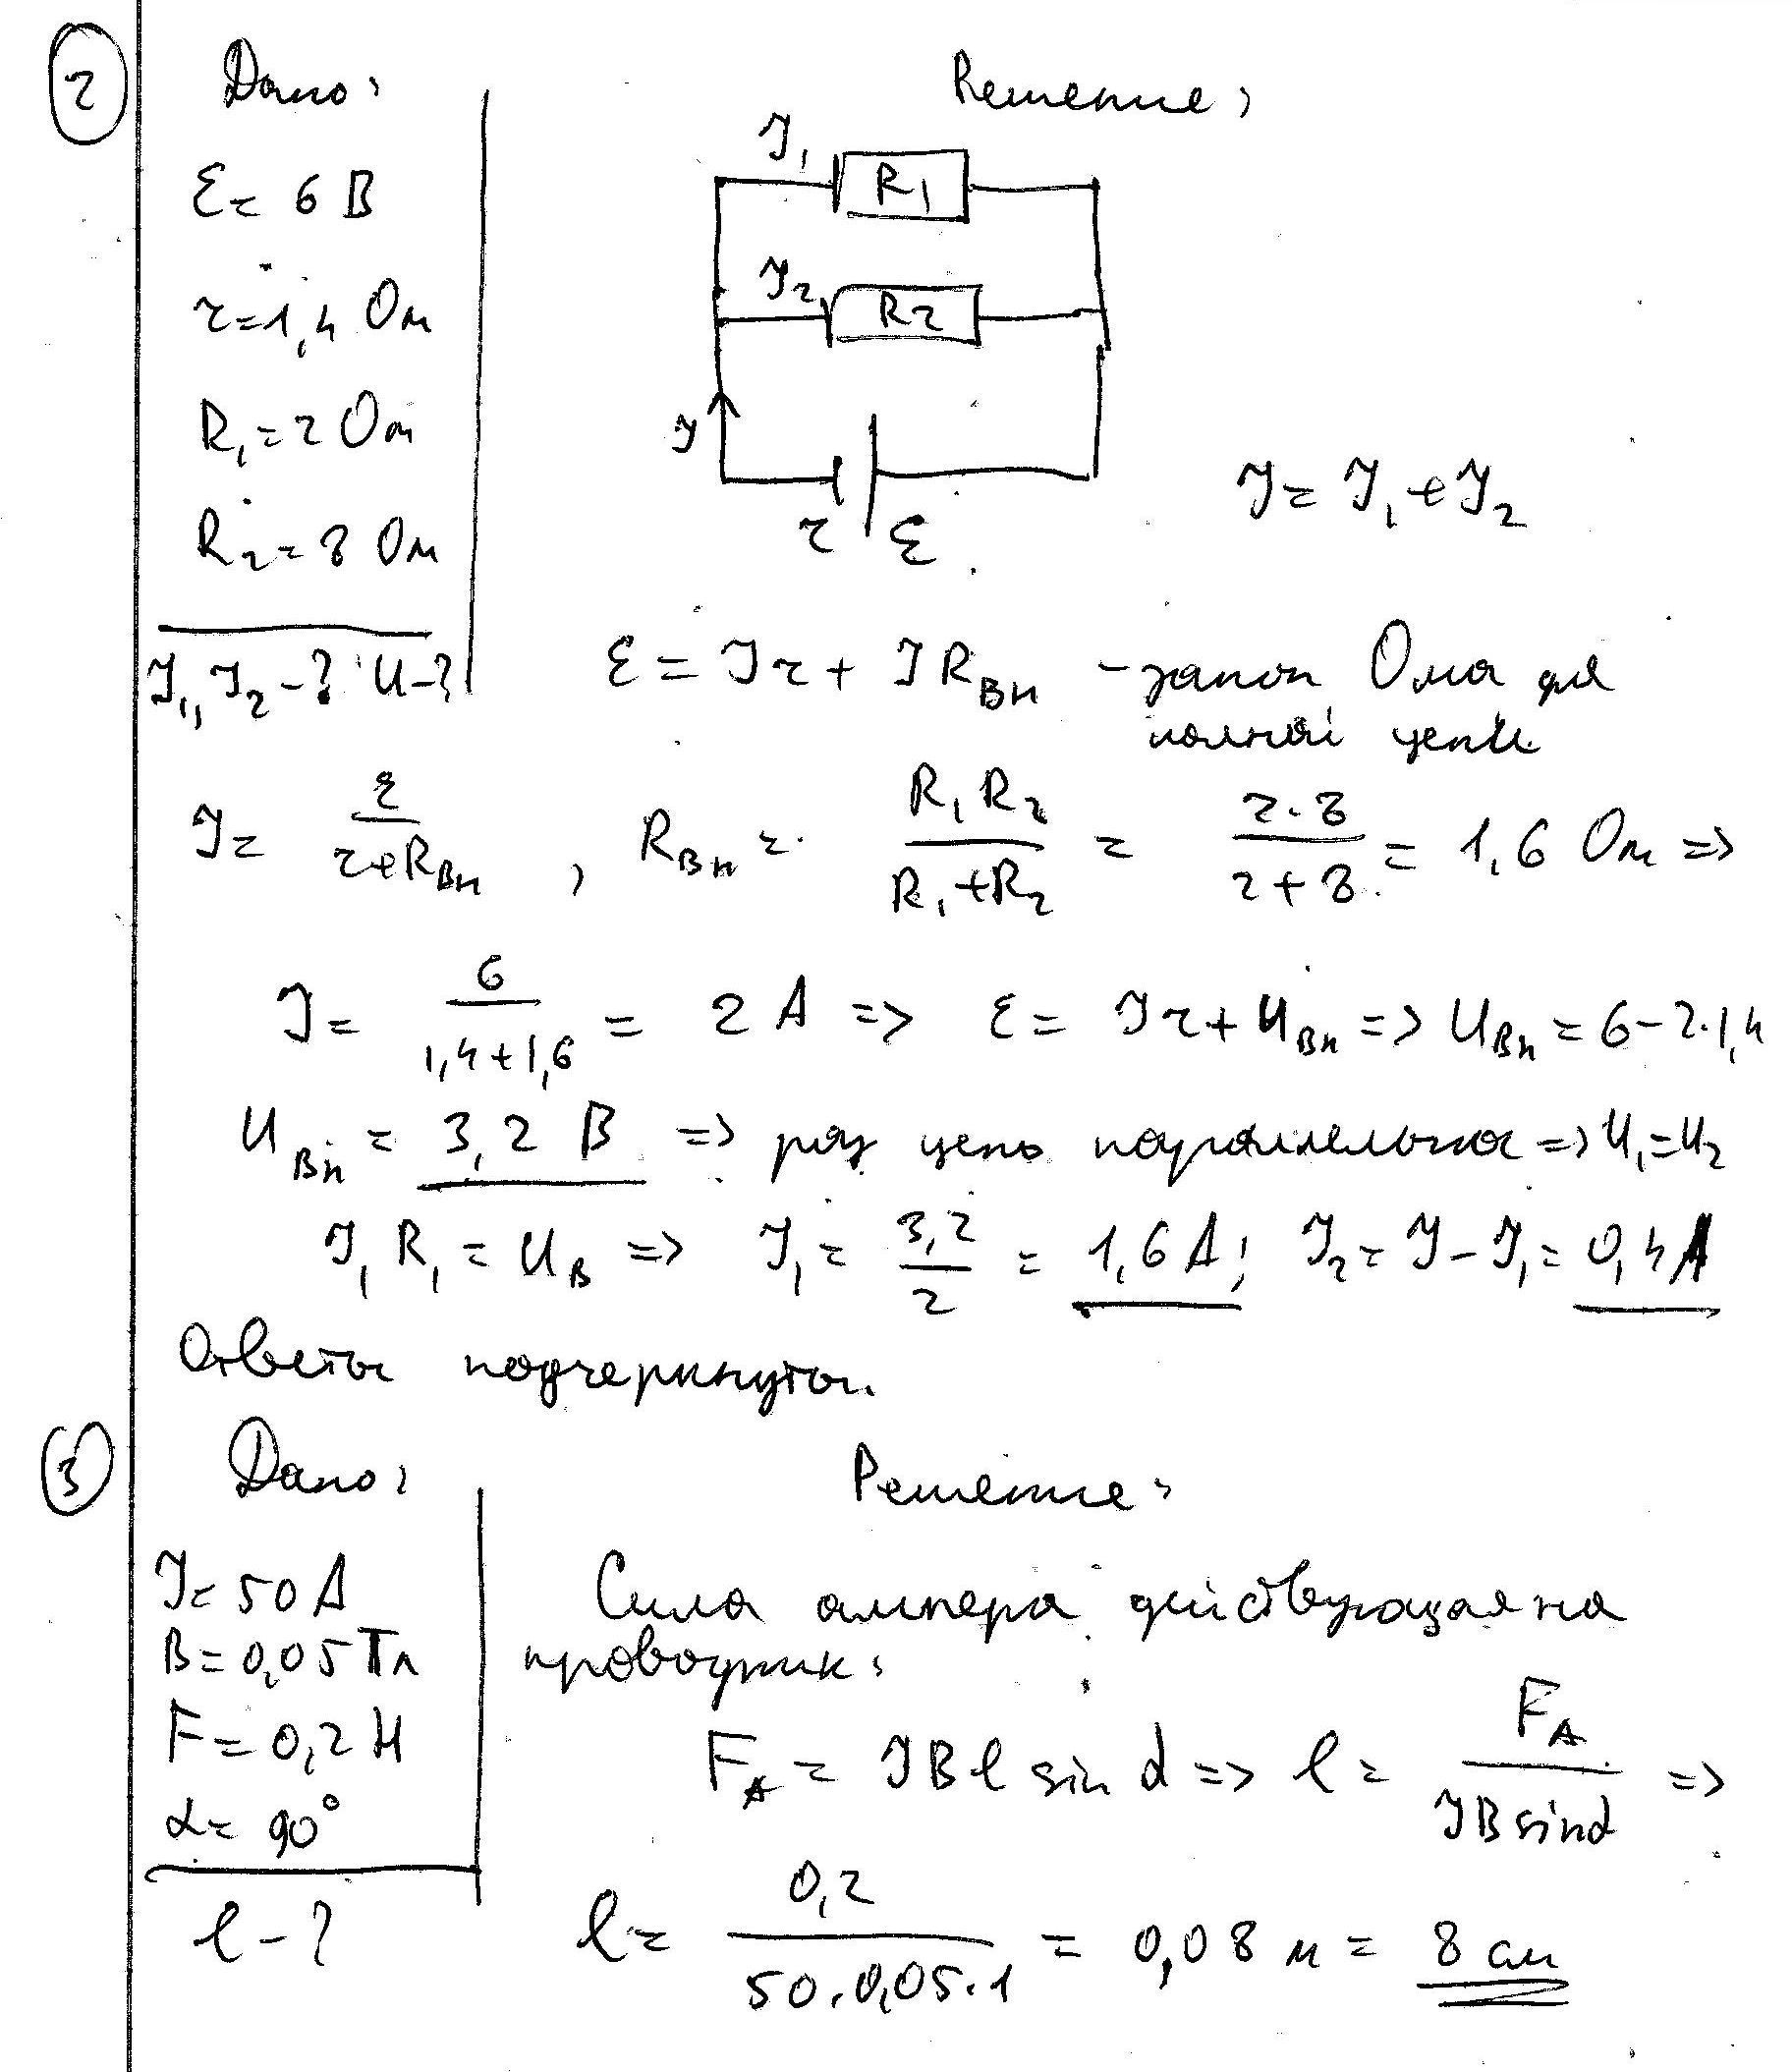 2 Дано: Решение:
ε = 6 В
r = 1,4 Ом
R₁ = 2 Ом
R₂ = 8 Ом
I₁, I₂ - ? U - ?
I₁ R₁
I₂ R₂
I
r ε
I = I₁ + I₂
ε = Ir + IRвн - закон Ома для
полной цепи
I = ε/(r + Rвн), Rвн = R₁R₂/(R₁ + R₂) = 2·8/(2 + 8) = 1,6 Ом =>
I = 6/(1,4 + 1,6) = 2 А => ε = Ir + Uвн => Uвн = 6 - 2·1,4
Uвн = 3,2 В => раз цепь параллельна => U₁ = U₂
I₁R₁ = Uв => I₁ = 3,2/2 = 1,6 А; I₂ = I - I₁ = 0,4 А
Ответы подчеркнуты.
3 Дано: Решение:
I = 50 А
B = 0,05 Тл
F = 0,2 Н
α = 90°
l - ?
Сила ампера действующая на
проводник:
Fᴀ = IBl sin α => l = Fᴀ/(IB sin α) =>
l = 0,2/(50·0,05·1) = 0,08 м = 8 см